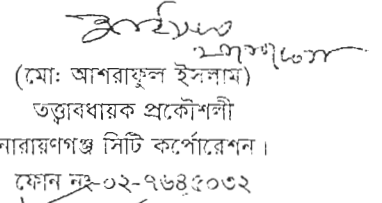 (মোঃ আশরাফুল ইসলাম)
তত্ত্বাবধায়ক প্রকৌশলী
নারায়ণগঞ্জ সিটি কর্পোরেশন।
ফোন নং-০২-৭৬৪৫০৩২